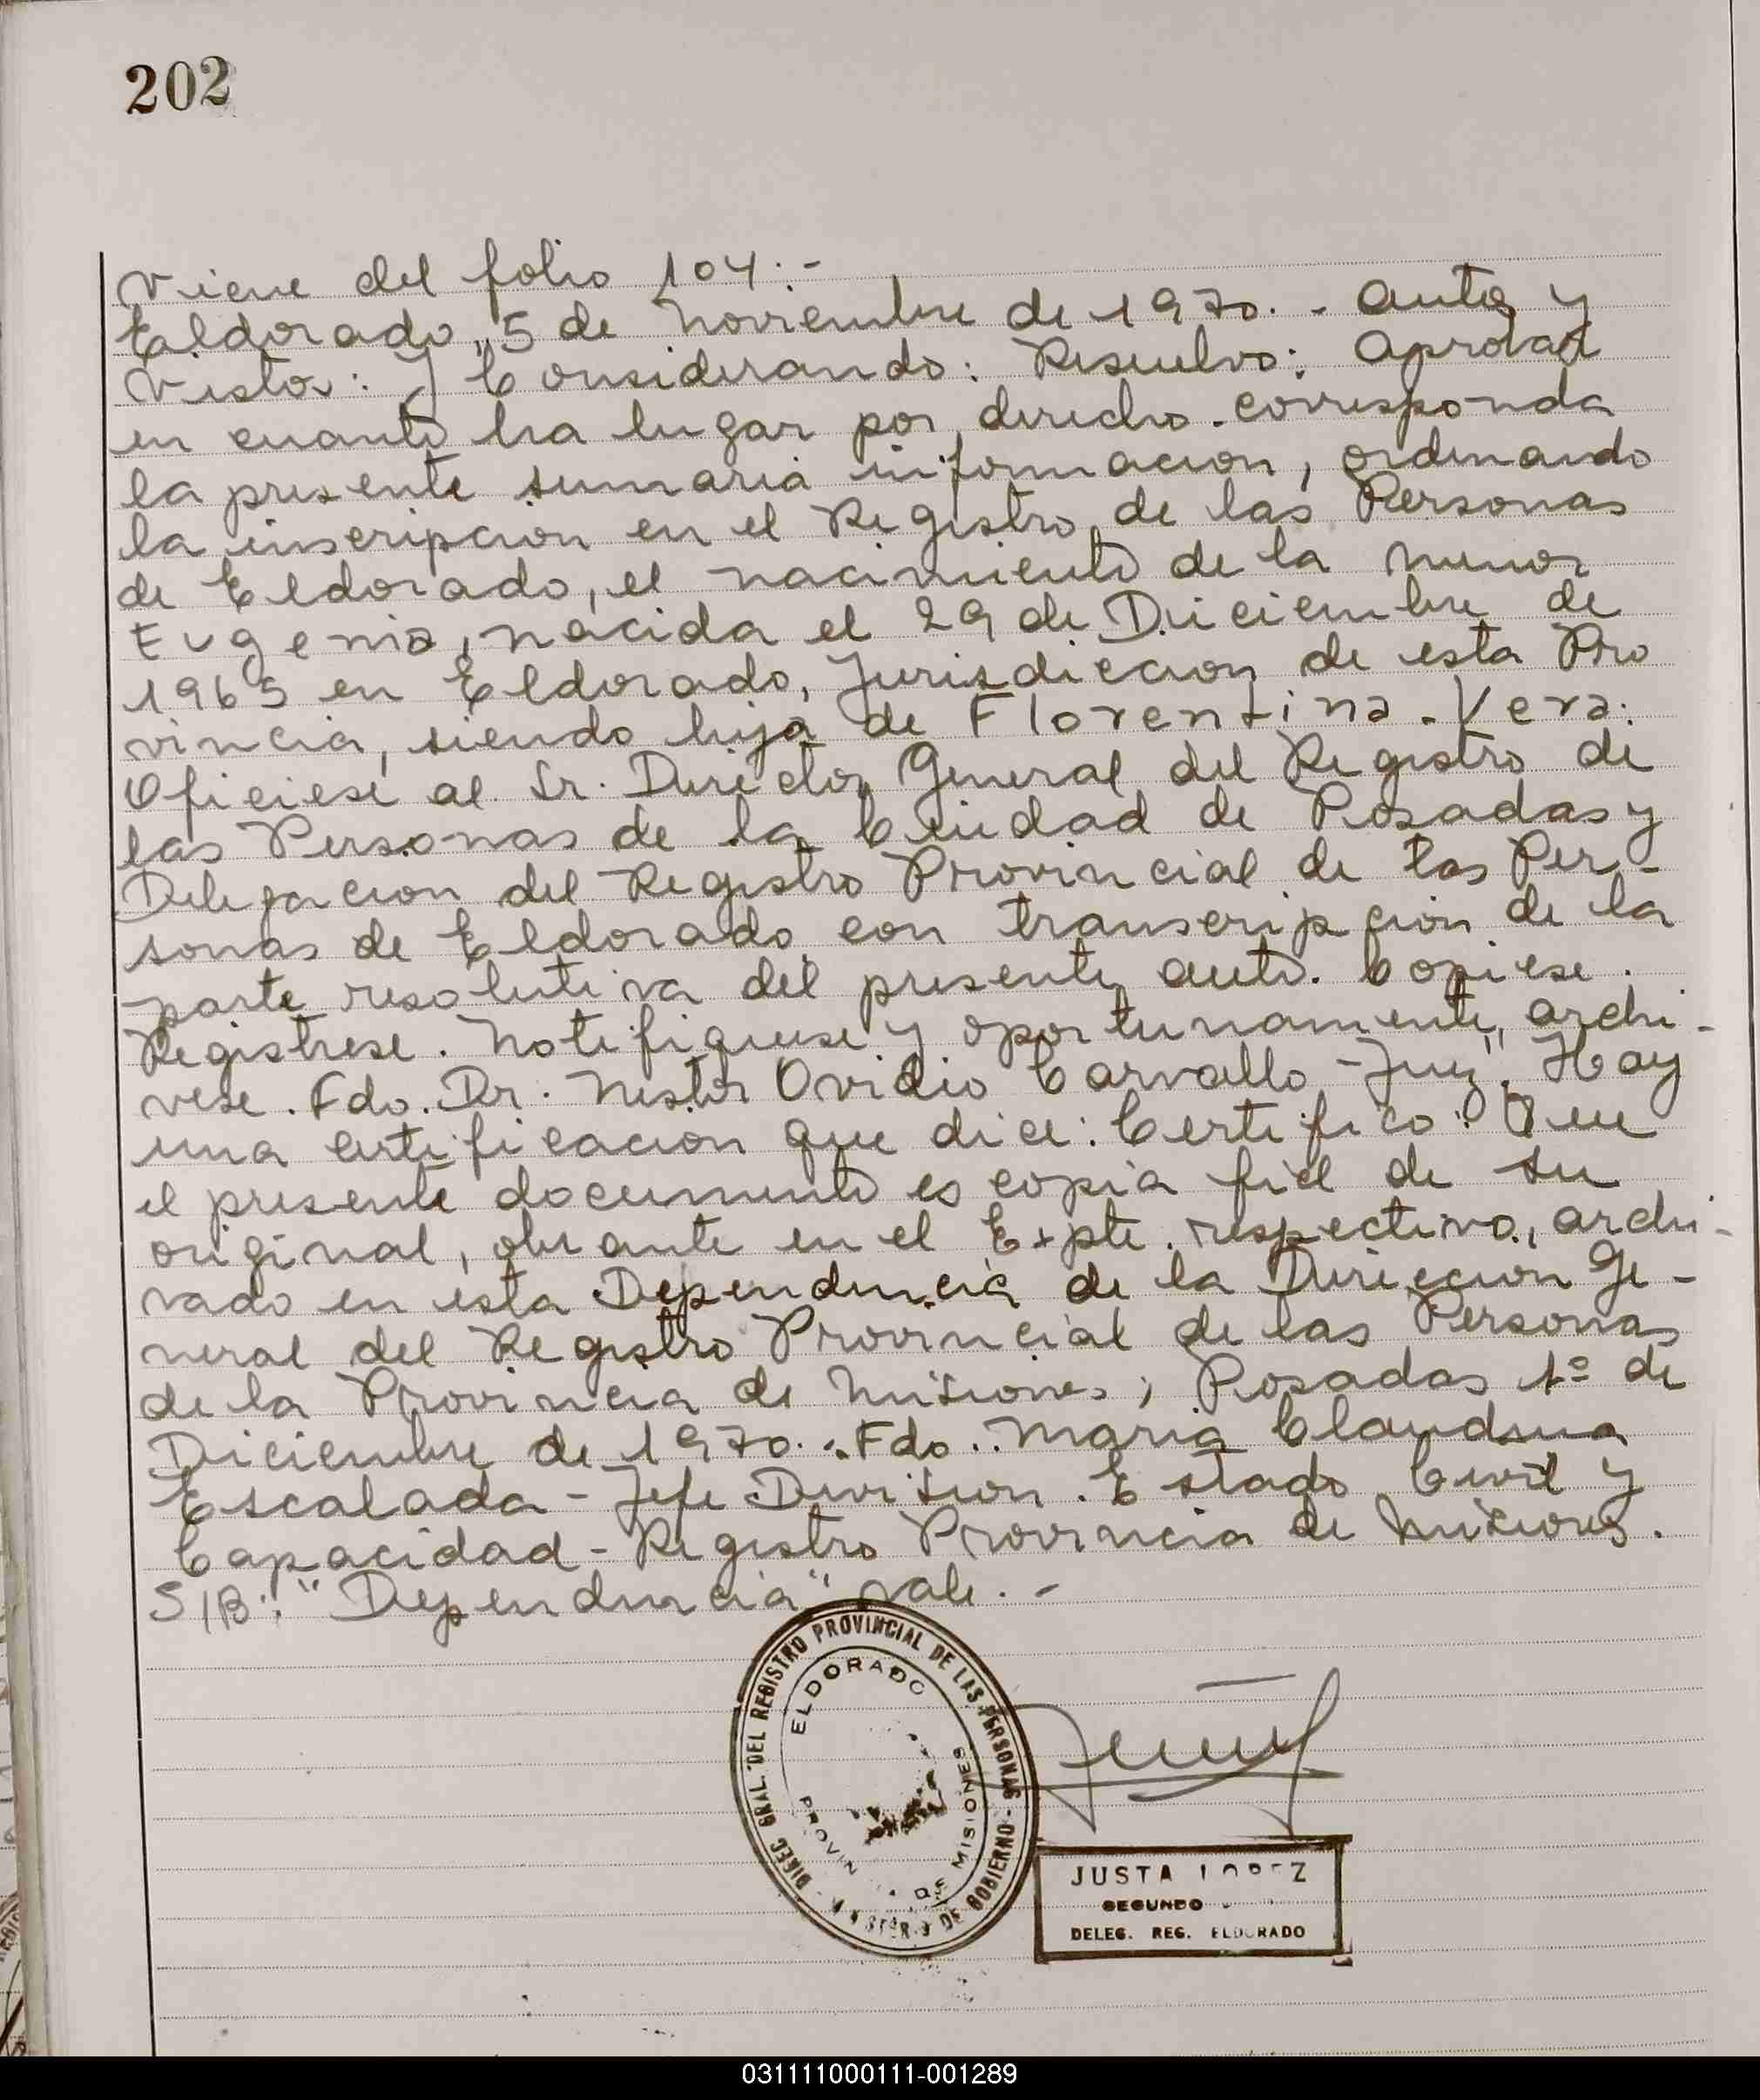 202
Viene del folio 104.-
Eldorado, 5 de Noviembre de 1970.- Autos y
Vistos: Y Considerando: Resuelvo: Aprobar
en cuanto ha lugar por derecho corresponda
la presente sumaria informacion, ordenando
la inscripcion en el Registro de las Personas
de Eldorado, el nacimiento de la menor
Eugenia, nacida el 29 de Diciembre de
1965 en Eldorado, Jurisdiccion de esta Pro
vincia, siendo hija de Florentina Vera.
Oficiese al Sr. Director General del Registro de
las Personas de la Ciudad de Posadas y
Delegacion del Registro Provincial de las Per-
sonas de Eldorado con transcripcion de la
parte resolutiva del presente auto. Copiese.
Registrese. Notifiquese y oportunamente, archi-
vese. Fdo. Dr. Nestor Ovidio Carvallo - Juez". Hay
una certificacion que dice: Certifico: Que
el presente documento es copia fiel de su
original, obrante en el Expte. respectivo, archi-
vado en esta Dependencia de la Direccion Ge-
neral del Registro Provincial de las Personas
de la Provincia de Misiones; Posadas 1º de
Diciembre de 1970.. Fdo.. Maria Claudina
Escalada - Jefe Division. Estado Civil y
Capacidad - Registro Provincia de Misiones.
S/B: "Dependencia" vale.-
DIREC. GRAL. DEL REGISTRO PROVINCIAL DE LAS PERSONAS - DE GOBIERNO -
ELDORADO
PROVIN DE MISIONES
JUSTA LOPEZ
SEGUNDO
DELEG. REG. ELDORADO
031111000111-001289